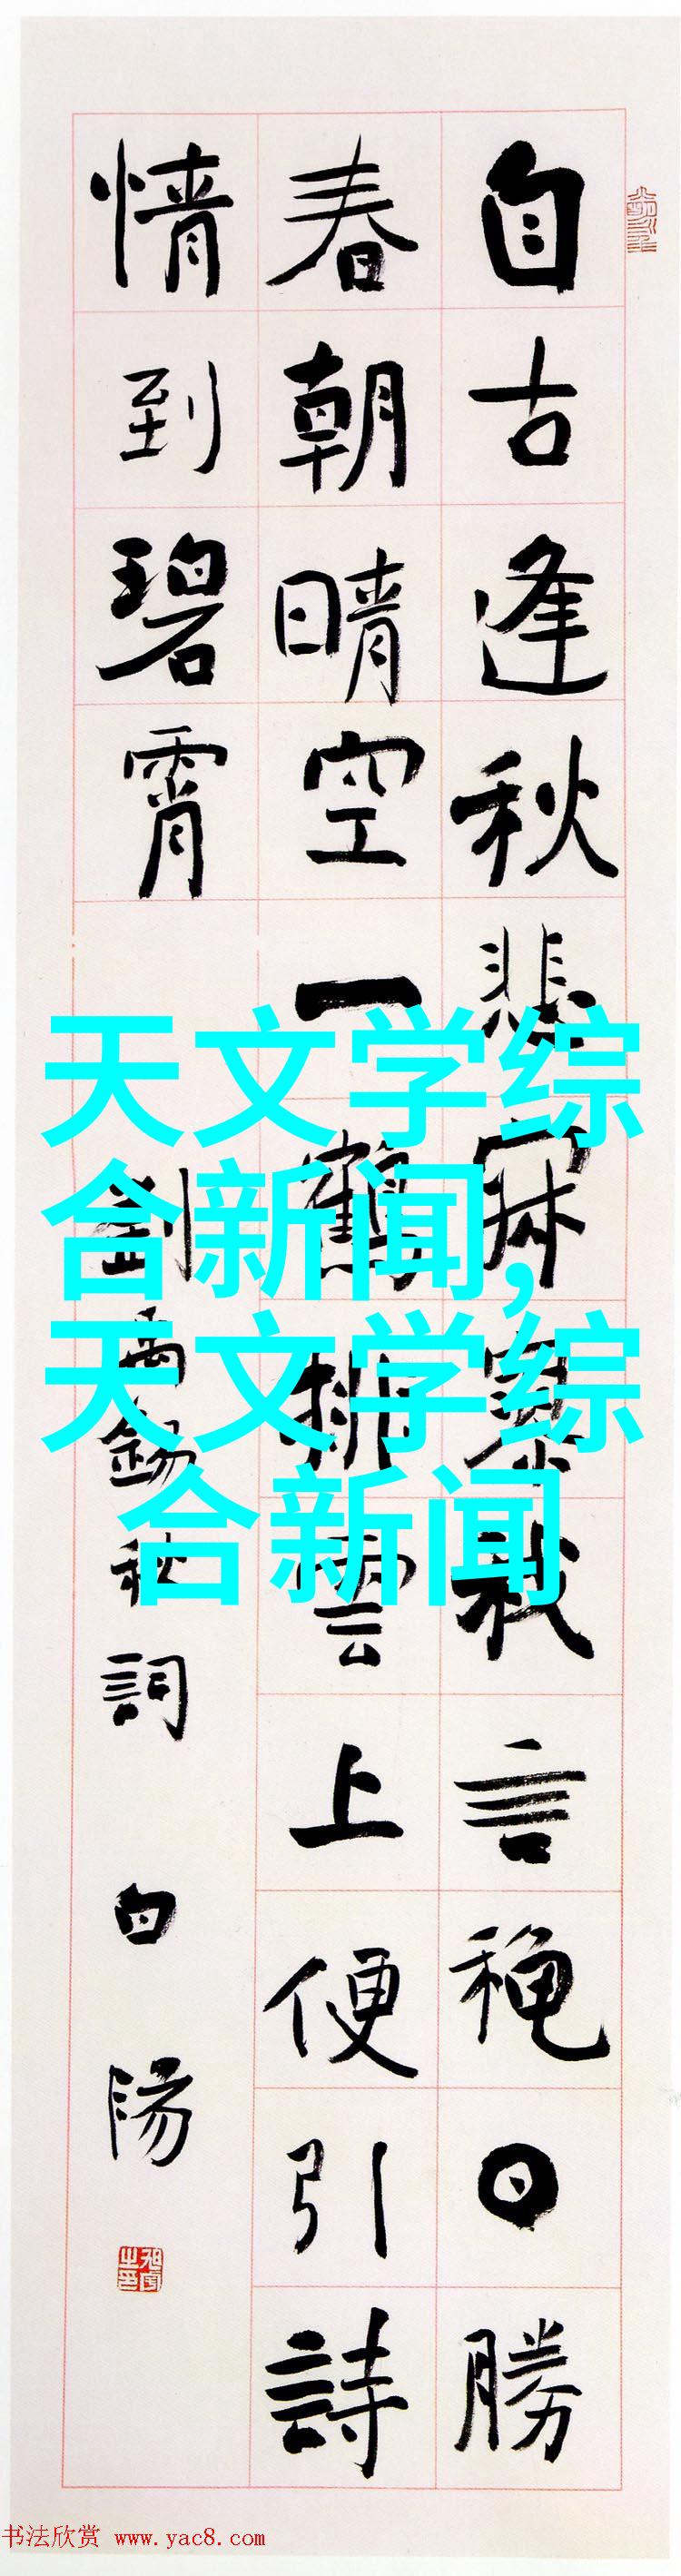 自古逢秋悲寂寥我言秋日勝
春朝晴空一鶴排雲上便引詩
情到碧霄
劉禹錫秋詞 白陽
天文学综
合新闻,
天文学综
合新闻
书法欣赏 www.yac8.com